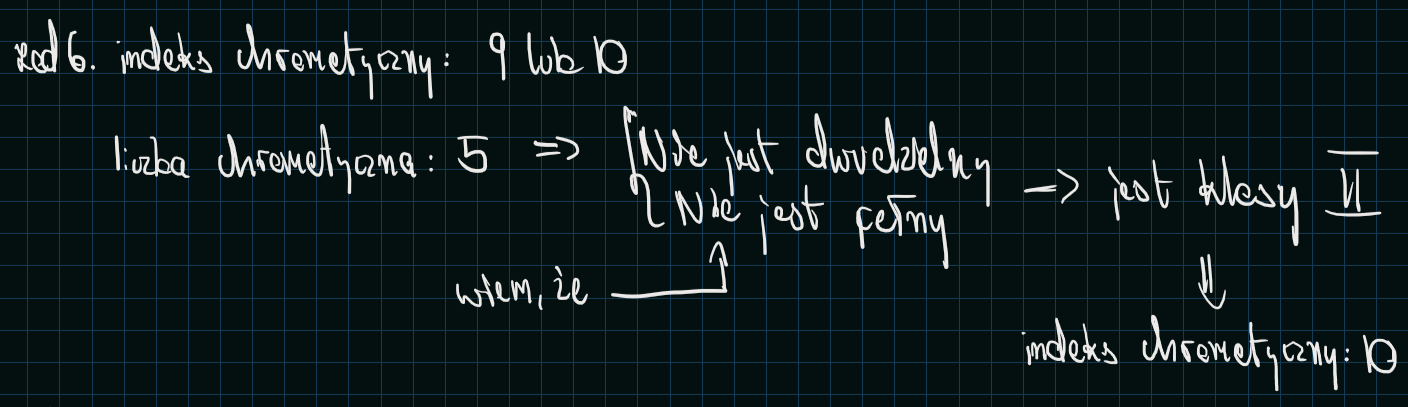 zad 6. indeks chromatyczny: 9 lub 10
liczba chromatyczna: 5 => { Nie jest dwudzielny
Nie jest pełny => jest klasy II
wiem, że
⇓
indeks chromatyczny: 10